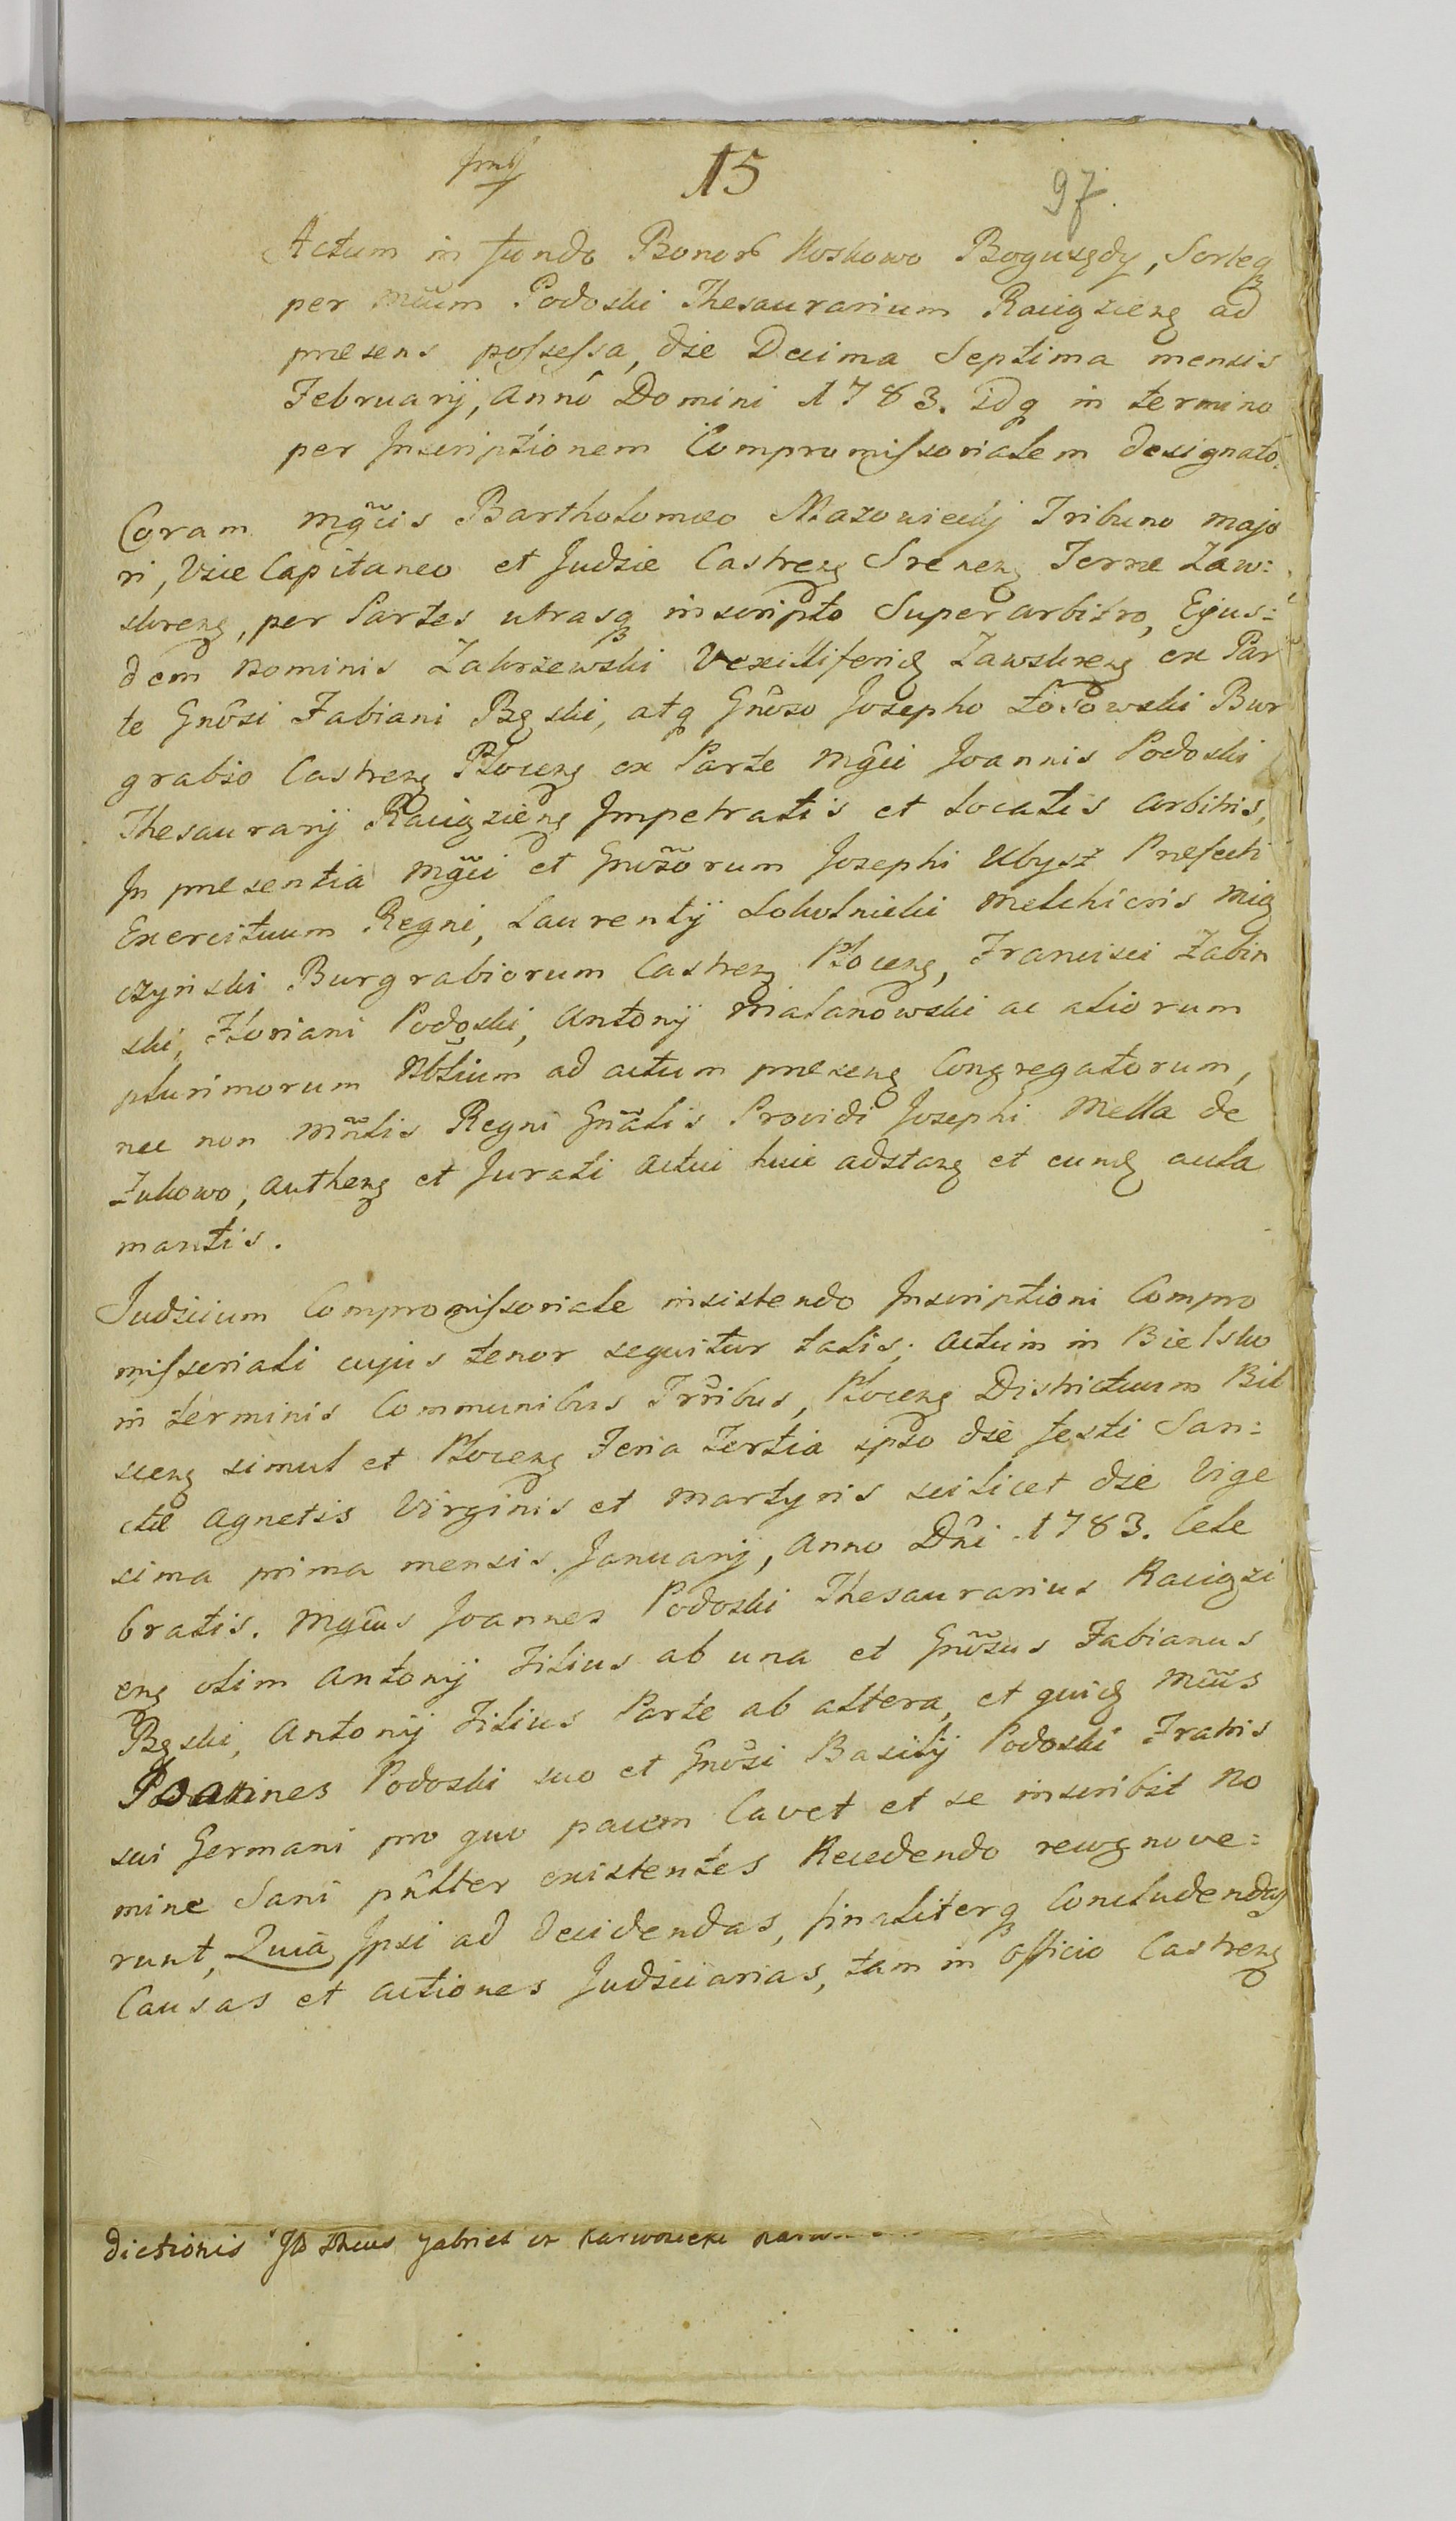 15
97.
Actum in fundo Bonor Koskowo Bogusędy, Sorteq
per Mcum Podoski Thesaurarium Raciązieng ad
præsens possessa, die Decima Septima mensis
Februarij, Annô Domini 1783. idq in termino
per Inscriptionem Compromissorialem designato.
Coram Mgcis Bartholomæo Mazowiecky Tribuno majo
ri, Vice Capitaneo et Judice Castreng Sreneng Terræ Zaw:
skreng, per Partes utrasq inscripto Superarbitro, Ejus:
dem Nominis Zakrzewski Vexilliferid Zawskreng ex Par
te Gnôsi Fabiani Bęski, atq Gnôso Josepho Łodowski Bur
grabio Castreng Ploceng ex Parte Mgci Joannis Podoski
Thesaurarij Raciązieng Impetratis et Locatis Arbitris,
In præsentia Mgci et Gnôsorum Josephi Ubysz Præfecti
Exercituum Regni, Laurentij Sokolnicki Melchioris Mią
czyński Burgrabiorum Castreng Ploceng, Francisci Zabin
ski, Floriani Podoski, Antonij Malanowski ac aliorum
plurimorum Nbłium ad actum præseng Congregatorum,
nec non Mñlis Regni Gñalis Providi Josephi Mella de
Żukowo, Autheng et Jurati Actui huic adstang et eund accla
mantis.
Judicium Compromissoriale insistendo Inscriptioni Compro
missoriali cujus tenor sequitur talis; Actum in Bielsko
in terminis Communibus Trribus, Ploceng Districtuum Bil
sceng simul et Ploceng Feria Tertia ipso die festi San:
ctæ Agnetis Virginis et Martyris scilicet die Vige
sima prima mensis Januarij, Anno Dni 1783. Cele
bratis. Mgcus Joannes Podoski Thesaurarius Raciązi
eng olim Antonij Filius ab una et Gnôsus Fabianus
Bęski, Antonij Filius Parte ab altera, et quid Mcus
Joannes Podoski suo et Gnôsi Basilij Podoski Fratris
sui Germani pro quo pacem Cavet et se inscribit No
mine Sani pñlter existentes Recedendo recognove:
runt, Quia Ipsi ad decidendas, finaliterq Concludendas
Causas et actiones Judiciarias, tam in officio Castreng
dictionis Gabriel Karwosiecki